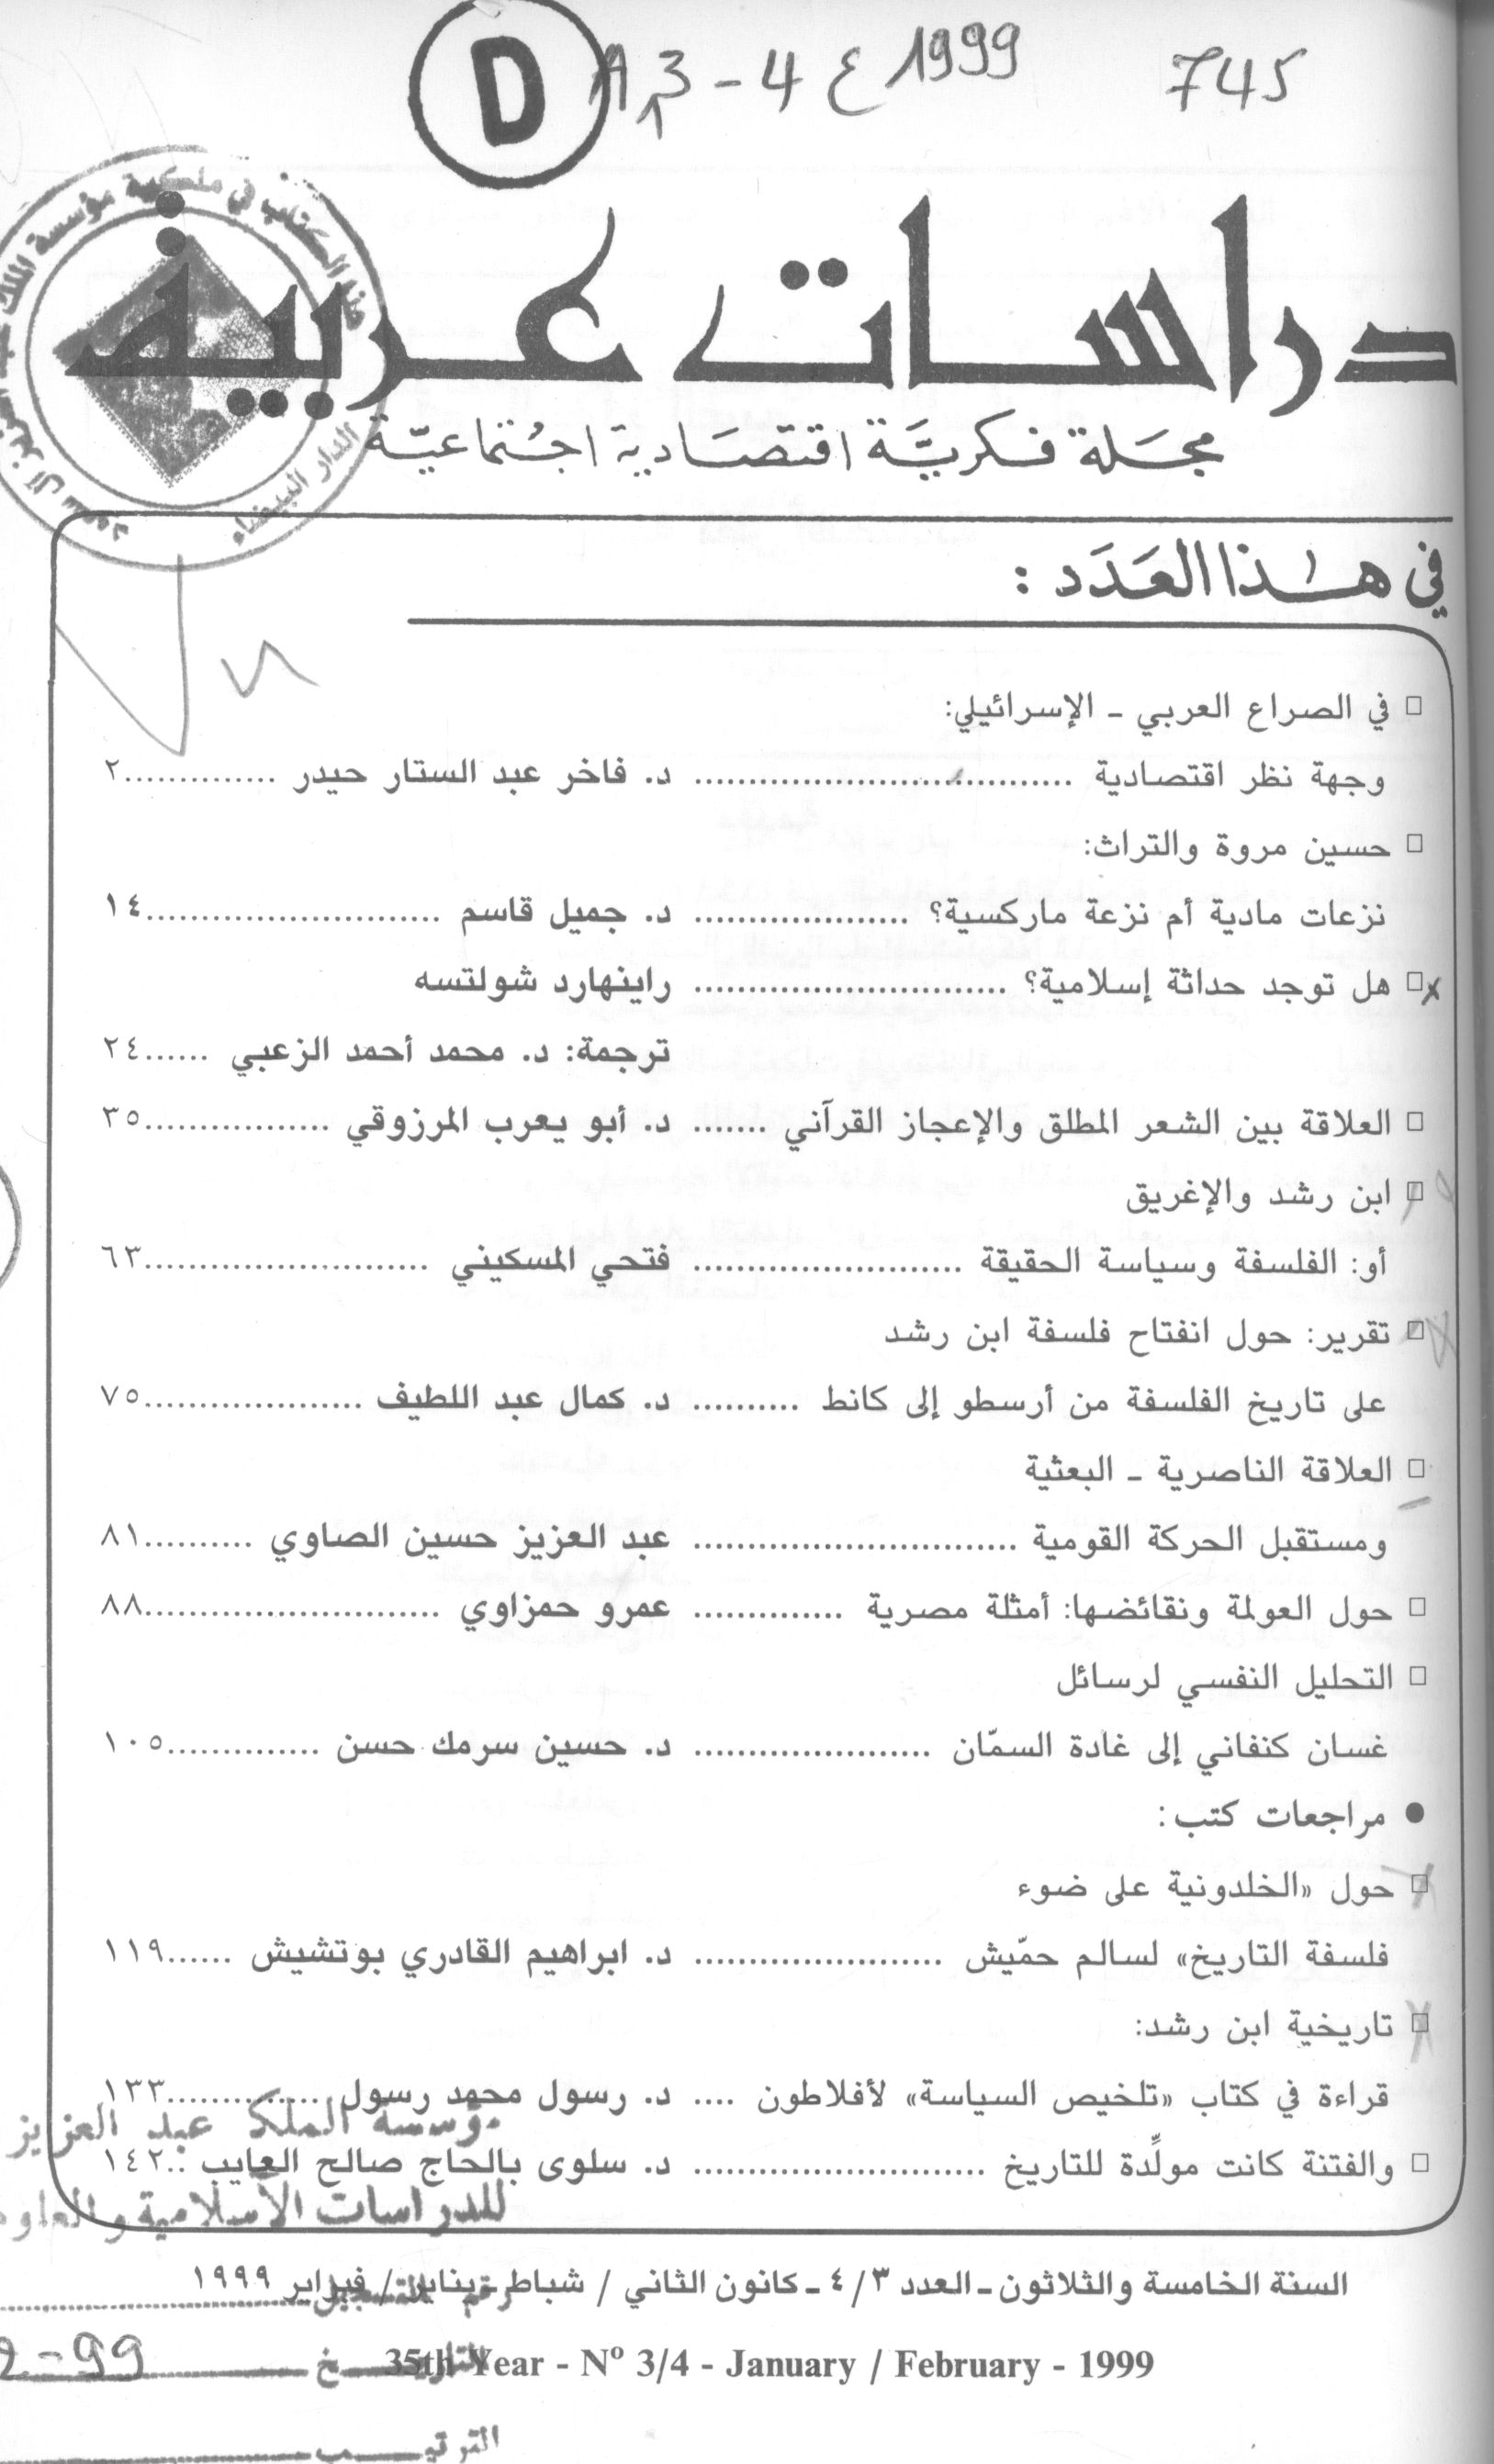 D
3-4 ع 1999
745
هذا الكتاب في ملكية مؤسسة الملك
آل سعود
الدار البيضاء
دراسات عربية
مجَلة فكريَّة اقتصَادية اجْتماعيّة
في هذا العَدَد :
□ في الصراع العربي - الإسرائيلي:
وجهة نظر اقتصادية ...................................... د. فاخر عبد الستار حيدر ..............٢
□ حسين مروة والتراث:
نزعات مادية أم نزعة ماركسية؟ .................... د. جميل قاسم ...........................١٤
□ هل توجد حداثة إسلامية؟ ............................. راينهارد شولتسه
ترجمة: د. محمد أحمد الزعبي ......٢٤
□ العلاقة بين الشعر المطلق والإعجاز القرآني ....... د. أبو يعرب المرزوقي .................٣٥
□ ابن رشد والإغريق
أو: الفلسفة وسياسة الحقيقة ......................... فتحي المسكيني ..........................٦٣
□ تقرير: حول انفتاح فلسفة ابن رشد
على تاريخ الفلسفة من أرسطو إلى كانط .......... د. كمال عبد اللطيف ....................٧٥
□ العلاقة الناصرية - البعثية
ومستقبل الحركة القومية .............................. عبد العزيز حسين الصاوي ..........٨١
□ حول العولمة ونقائضها: أمثلة مصرية .............. عمرو حمزاوي ...........................٨٨
□ التحليل النفسي لرسائل
غسان كنفاني إلى غادة السمّان ...................... د. حسين سرمك حسن ..............١٠٥
● مراجعات كتب:
□ حول «الخلدونية على ضوء
فلسفة التاريخ» لسالم حمّيش ....................... د. ابراهيم القادري بوتشيش ......١١٩
□ تاريخية ابن رشد:
قراءة في كتاب «تلخيص السياسة» لأفلاطون .... د. رسول محمد رسول ...............١٣٣
مؤسسة الملك عبد العزيز
□ والفتنة كانت مولِّدة للتاريخ ........................... د. سلوى بالحاج صالح العايب ...١٤٢
للدراسات الأسلامية والعلوم
السنة الخامسة والثلاثون - العدد ٤/٣ - كانون الثاني / شباط - يناير / فبراير ١٩٩٩
رقم التسجيل
35th Year - Nº 3/4 - January / February - 1999
التاريخ 2-99
الترتيب